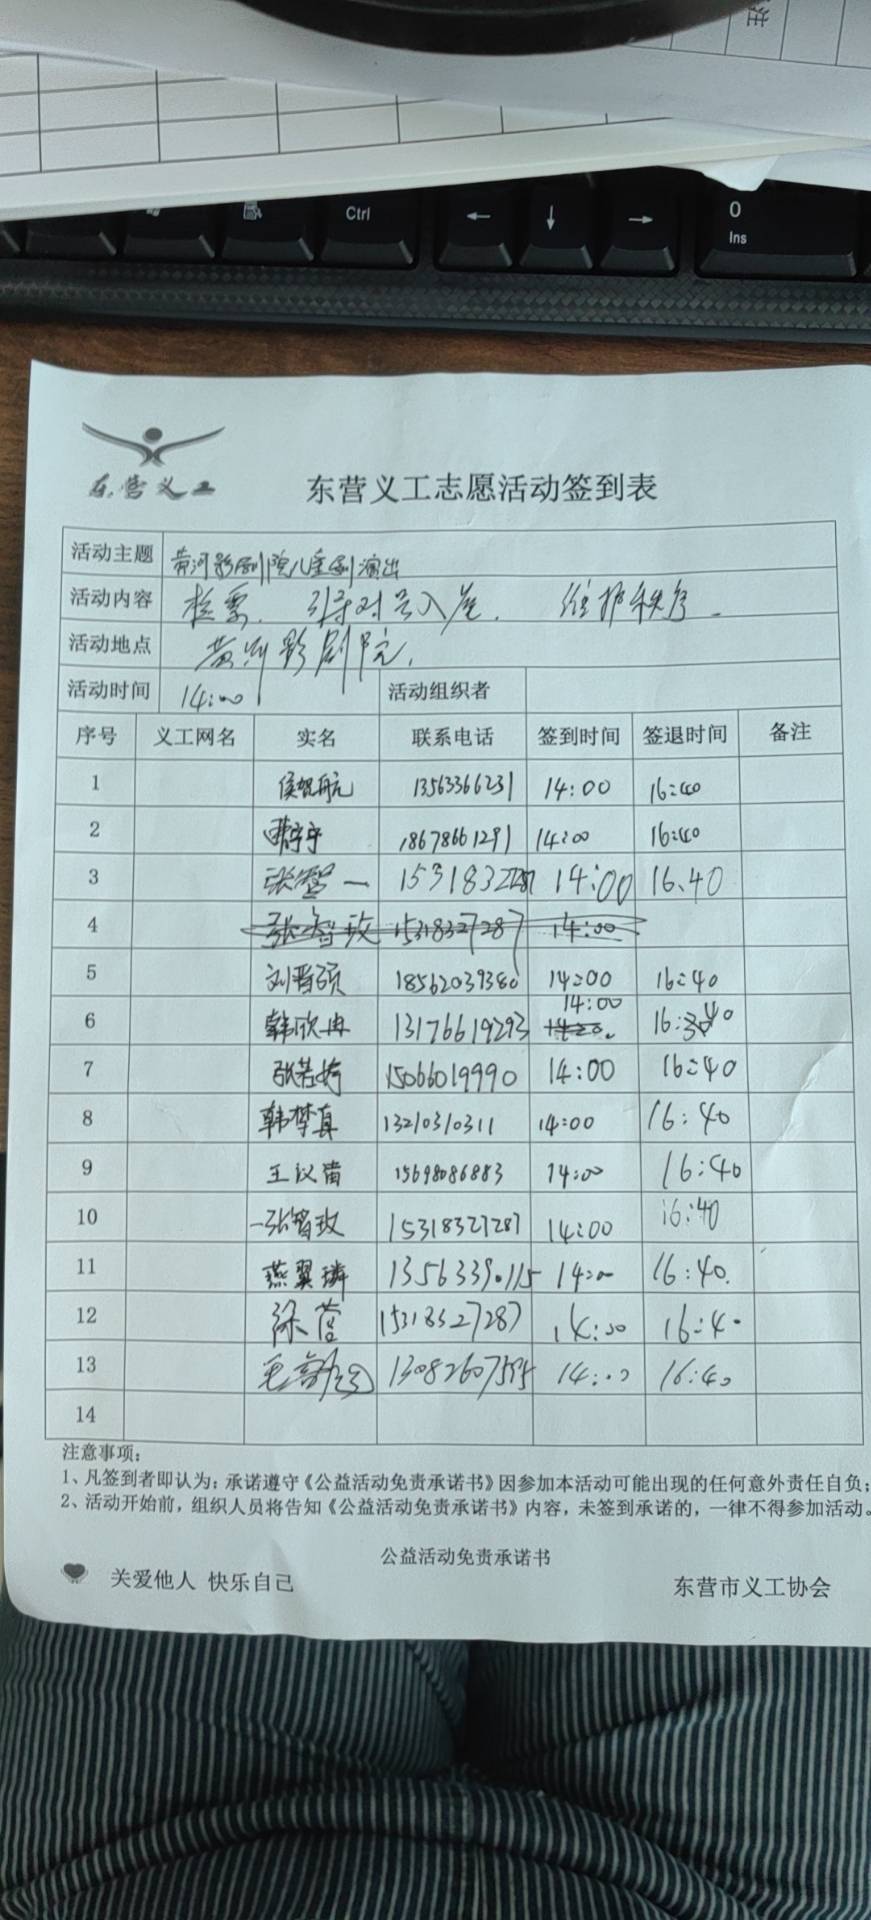 注
Ctrl ← ↓ → 0
Ins
东营义工
东营义工志愿活动签到表
活动主题 黄河影剧院儿童剧演出
活动内容 检票. 引导对号入座. 维护秩序.
活动地点 黄河影剧院.
活动时间 14:00 活动组织者
序号 义工网名 实名 联系电话 签到时间 签退时间 备注
1 侯智航 13563366231 14:00 16:40
2 宁宁 18678661291 14:00 16:40
3 张智一 15318327287 14:00 16.40
4 张智玫 15318327287 14:00
5 刘晋硕 18562039380 14:00 16:40
6 韩欣冉 13176619293 14:00 16:40
7 张若婷 15066019990 14:00 16:40
8 韩梦真 13210310311 14:00 16:40
9 王议苗 15698086883 14:00 16:40
10 张智玫 15318327287 14:00 16:40
11 燕翼璘 1356339.115 14:00 16:40.
12 徐营 15318327287 14:00 16:40
13 14:00 16:40
14
注意事项:
1、凡签到者即认为:承诺遵守《公益活动免责承诺书》因参加本活动可能出现的任何意外责任自负;
2、活动开始前,组织人员将告知《公益活动免责承诺书》内容,未签到承诺的,一律不得参加活动。
公益活动免责承诺书
关爱他人 快乐自己 东营市义工协会